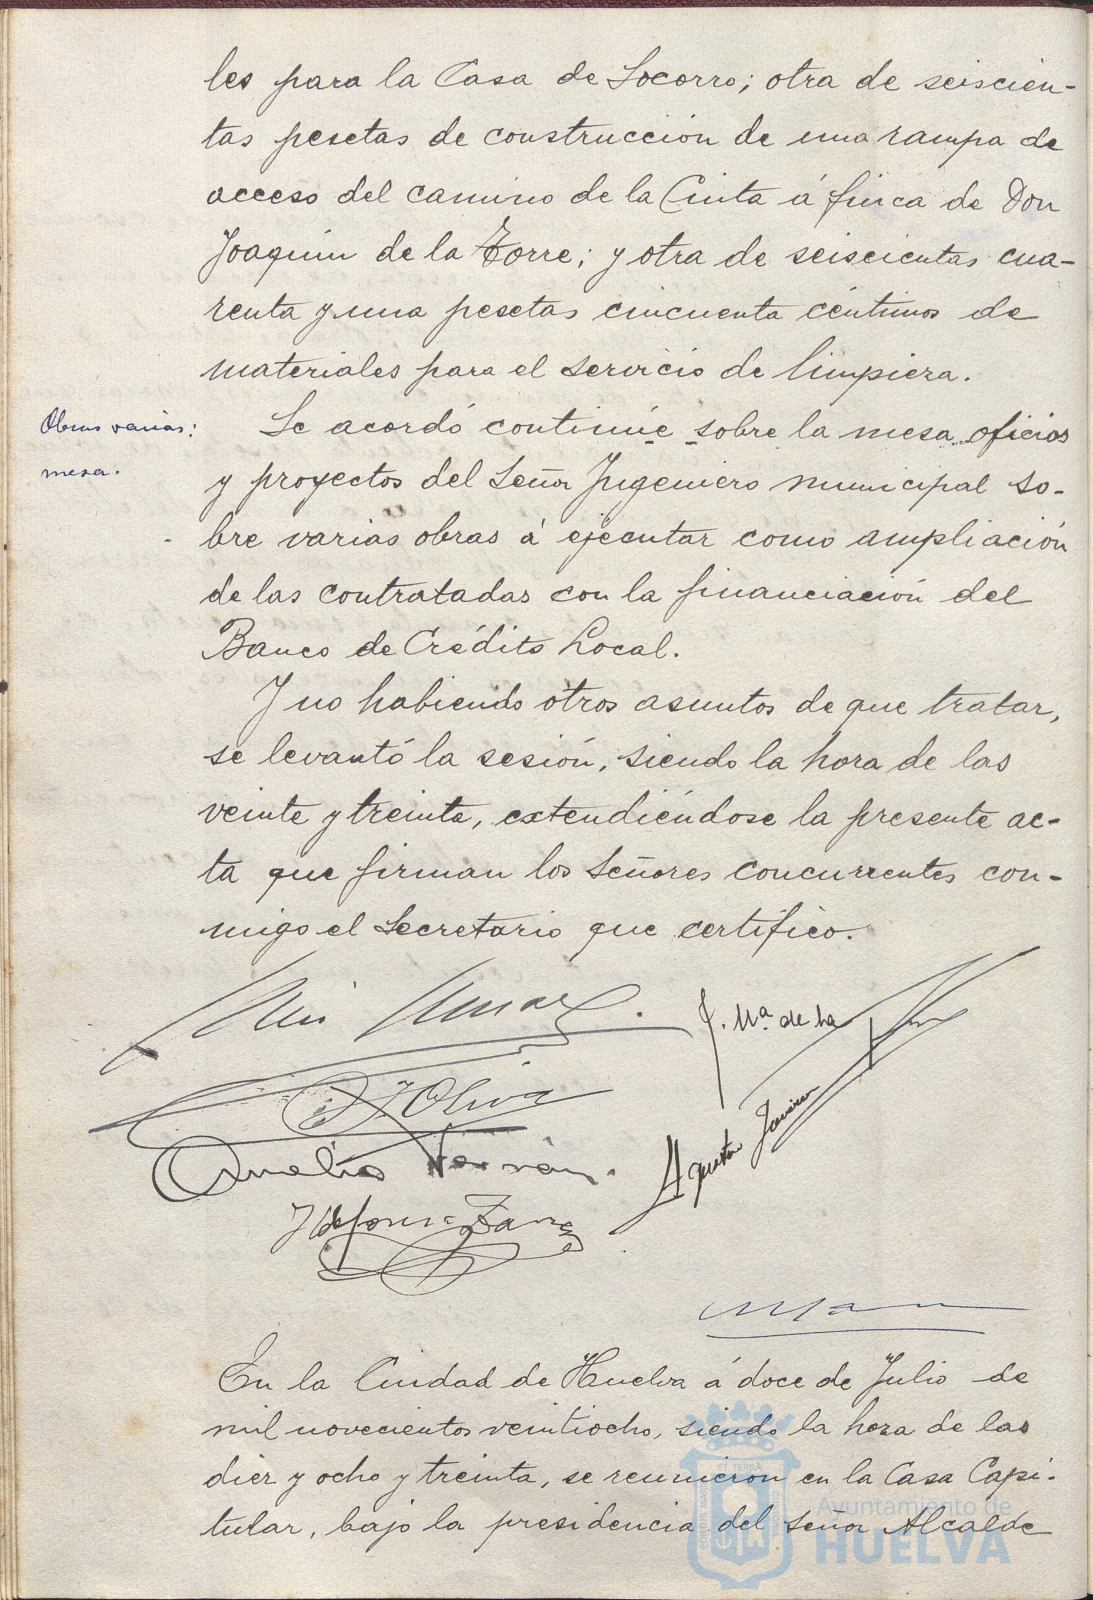 les para la Casa de Socorro; otra de seiscien-
tas pesetas de construcción de una rampa de
acceso del camino de la Cinta á finca de Don
Joaquin de la Torre; y otra de seiscientas cua-
renta y una pesetas cincuenta céntimos de
materiales para el servicio de limpieza.
Obras varias:
mesa.
Se acordó continúe sobre la mesa oficios
y proyectos del Señor Ingeniero municipal so-
bre varias obras á ejecutar como ampliación
de las contratadas con la financiación del
Banco de Crédito Local.
Y no habiendo otros asuntos de que tratar,
se levantó la sesión, siendo la hora de las
veinte y treinta, extendiéndose la presente ac-
ta que firman los Señores concurrentes con-
migo el Secretario que certifico.
J. Mª. de la
Oliva
Aurelio
Agustín
Ildefonso
En la Ciudad de Huelva á doce de Julio de
mil novecientos veintiocho, siendo la hora de las
diez y ocho y treinta, se reunieron en la Casa Capi-
tular, bajo la presidencia del señor Alcalde
Ayuntamiento de
HUELVA